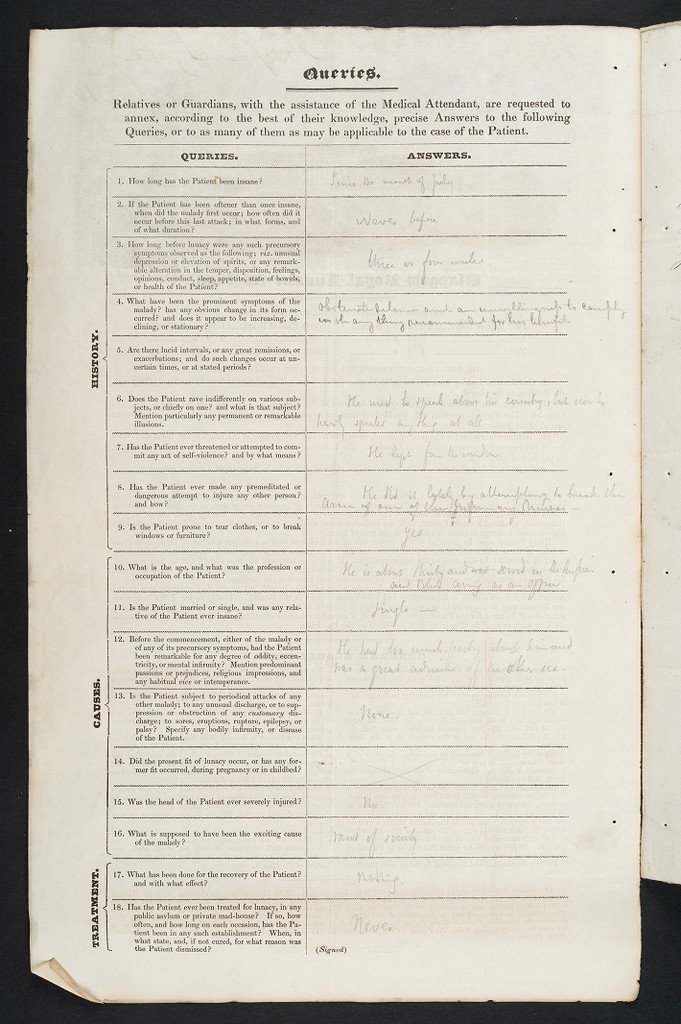 Queries.
Relatives or Guardians, with the assistance of the Medical Attendant, are requested to
annex, according to the best of their knowledge, precise Answers to the following
Queries, or to as many of them as may be applicable to the case of the Patient.
QUERIES.
ANSWERS.
HISTORY.
1. How long has the Patient been insane?
Since the month of July
2. If the Patient has been oftener than once insane,
when did the malady first occur; how often did it
occur before this last attack; in what forms, and
of what duration?
Never before
3. How long before lunacy were any such precursory
symptoms observed as the following; viz. unusual
depression or elevation of spirits, or any remark-
able alteration in the temper, disposition, feelings,
opinions, conduct, sleep, appetite, state of bowels,
or health of the Patient?
three or four weeks
4. What have been the prominent symptoms of the
malady? has any obvious change in its form oc-
curred? and does it appear to be increasing, de-
clining, or stationary?
Obstinate silence and an unwillingness to comply
with any thing recommended for his benefit
5. Are there lucid intervals, or any great remissions, or
exacerbations; and do such changes occur at un-
certain times, or at stated periods?
6. Does the Patient rave indifferently on various sub-
jects, or chiefly on one? and what is that subject?
Mention particularly any permanent or remarkable
illusions.
He used to speak about his country, but now he
hardly speaks any thing at all
7. Has the Patient ever threatened or attempted to com-
mit any act of self-violence? and by what means?
He leapt from the window
8. Has the Patient ever made any premeditated or
dangerous attempt to injure any other person?
and how?
He did so lately by attempting to break the
arm of one of the Infirmary Nurses
9. Is the Patient prone to tear clothes, or to break
windows or furniture?
Yes
CAUSES.
10. What is the age, and what was the profession or
occupation of the Patient?
He is about thirty and served in the Russian
and Polish army as an officer
11. Is the Patient married or single, and was any rela-
tive of the Patient ever insane?
Single —
12. Before the commencement, either of the malady or
of any of its precursory symptoms, had the Patient
been remarkable for any degree of oddity, eccen-
tricity, or mental infirmity? Mention predominant
passions or prejudices, religious impressions, and
any habitual vice or intemperance.
He had too much about himself
was a great admirer of the other sex.
13. Is the Patient subject to periodical attacks of any
other malady; to any unusual discharge, or to sup-
pression or obstruction of any customary dis-
charge; to sores, eruptions, rupture, epilepsy, or
palsy? Specify any bodily infirmity, or disease
of the Patient.
None.
14. Did the present fit of lunacy occur, or has any for-
mer fit occurred, during pregnancy or in childbed?
15. Was the head of the Patient ever severely injured?
No
16. What is supposed to have been the exciting cause
of the malady?
Want of society
TREATMENT.
17. What has been done for the recovery of the Patient?
and with what effect?
Nothing
18. Has the Patient ever been treated for lunacy, in any
public asylum or private mad-house? If so, how
often, and how long on each occasion, has the Pa-
tient been in any such establishment? When, in
what state, and, if not cured, for what reason was
the Patient dismissed?
Never
(Signed)